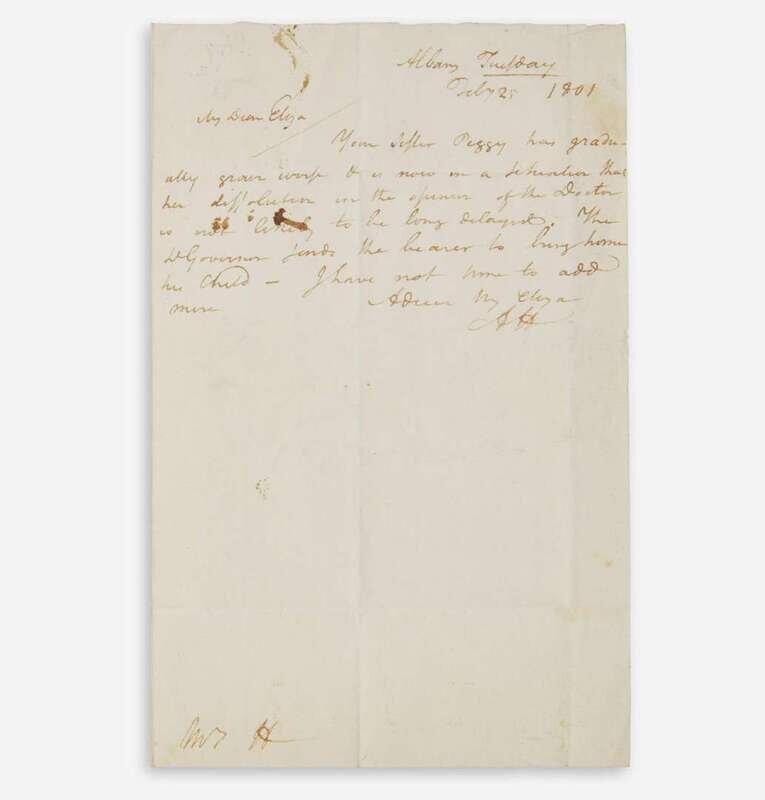 Albany Tuesday
Feby 25 1801
My Dear Eliza
Your sister Peggy has gradu-
ally grown worse & is now in a situation that
her dissolution in the opinion of the Doctor
is not likely to be long delayed. The
Lt Governor sends the bearer to bring home
his Child – I have not time to add
more
Adieu My Eliza
AH
Mrs H